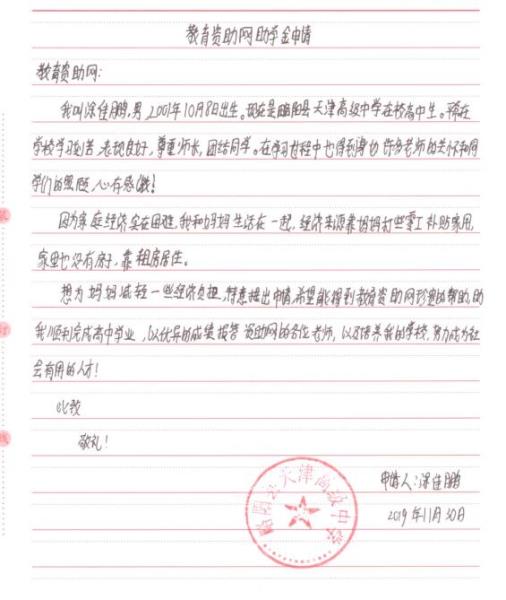 教育资助网助学金申请
教育资助网:
我叫涂佳鹏,男,2001年10月8日出生。现在是略阳县天津高级中学在校高中生。我在
学校学习刻苦,表现良好,尊重师长,团结同学。在学习过程中也得到身边许多老师的关怀和同
学们的照顾,心存感激!
因为家庭经济实在困难,我和妈妈生活在一起,经济来源靠妈妈打些零工补贴家用,
家里也没有房子,靠租房居住。
想为妈妈减轻一些经济负担,特意提出申请,希望能得到教育资助网珍贵的帮助,助
我顺利完成高中学业,以优异的成绩报答资助网的各位老师,以及培养我的学校,努力成为社
会有用的人才!
此致
敬礼!
申请人:涂佳鹏
2019年11月30日
略阳县天津高级中学